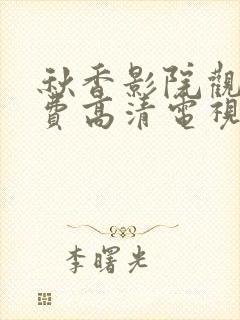 秋香影院觀
費高清電視
李曙光